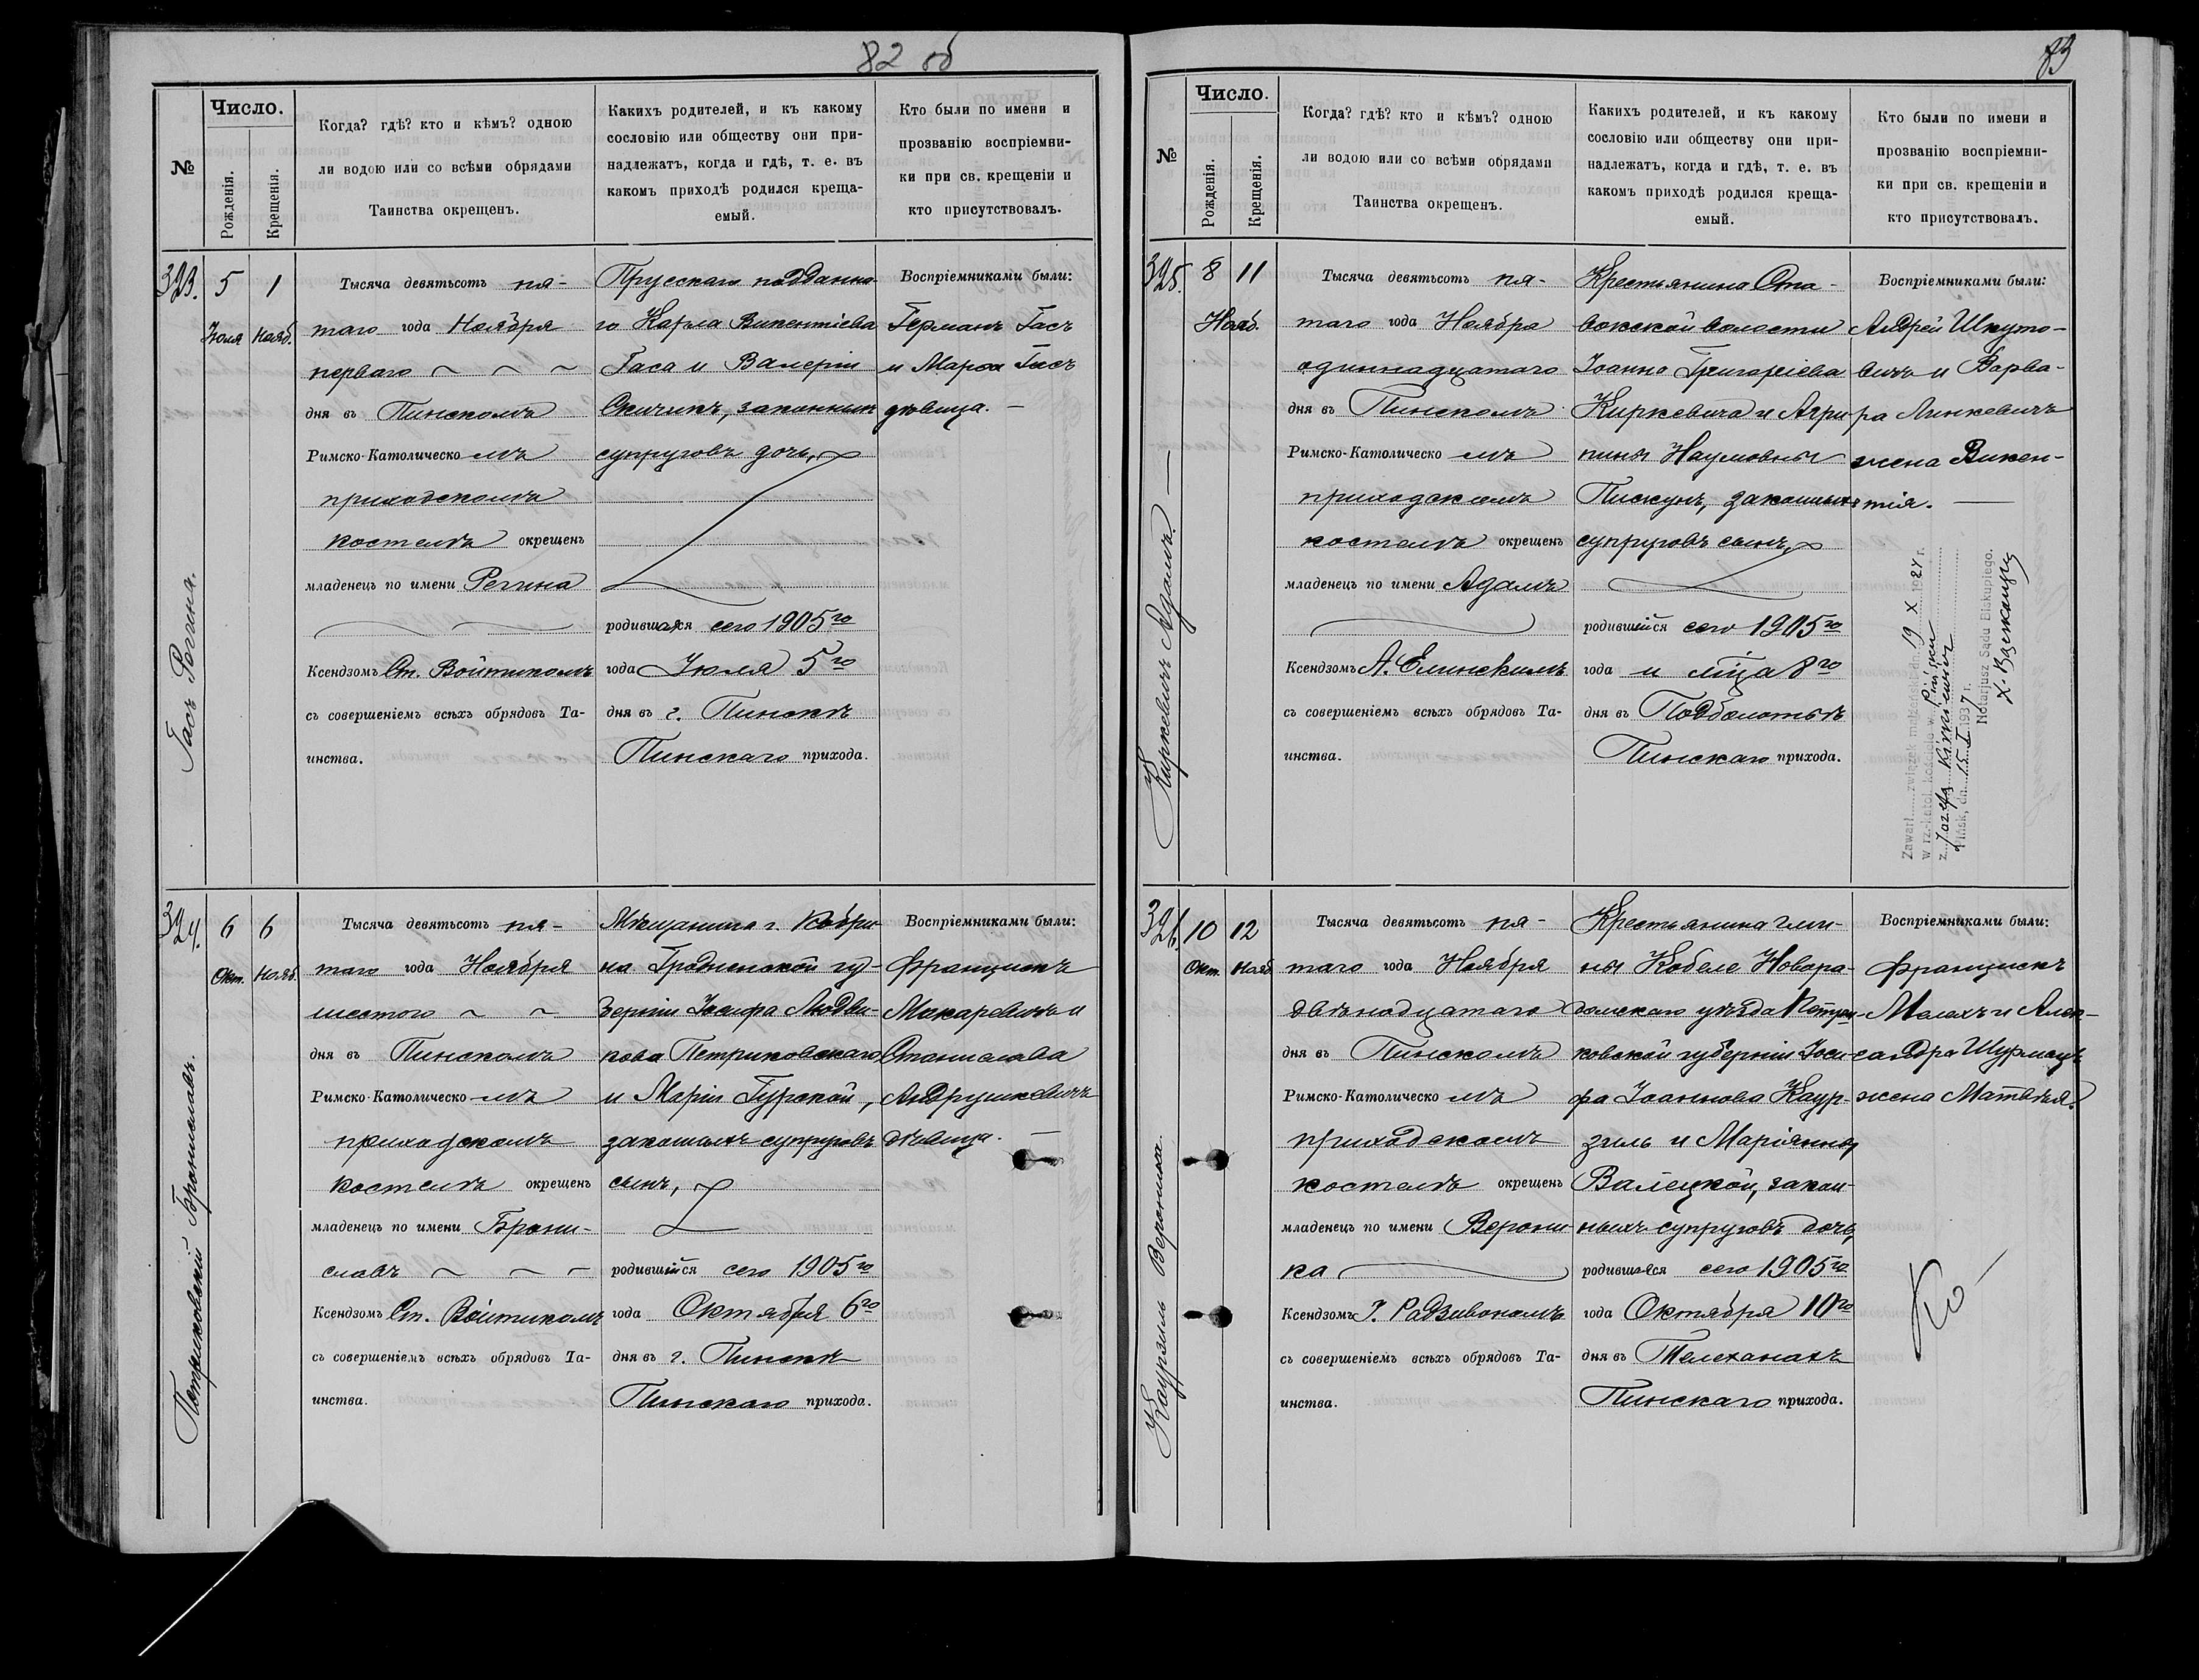 82 об
№
Число.
Рожденія.
Крещенія.
Когда? гдѣ? кто и кѣмъ? одною
ли водою или со всѣми обрядами
Таинства окрещенъ.
Какихъ родителей, и къ какому
сословію или обществу они при-
надлежатъ, когда и гдѣ, т. е. въ
какомъ приходѣ родился креща-
емый.
Кто были по имени и
прозванію воспріемни-
ки при св. крещеніи и
кто присутствовалъ.
323.
Гасъ Регина.
5
Іюля
1
Нояб.
Тысяча девятьсотъ пя-
таго года Ноября
перваго
дня въ Пинскомъ
Римско-Католическомъ
приходскомъ
костелѣ окрещенъ
младенецъ по имени Регина
Ксендзомъ Ст. Войтикомъ
съ совершеніемъ всѣхъ обрядовъ Та-
инства.
Прусскаго подданна-
го Карла Викентіева
Гаса и Валеріи
Скичикъ, законных
супруговъ дочь,
родившаяся сего 1905го
года Іюля 5го
дня въ г. Пинскѣ
Пинскаго прихода.
Воспріемниками были:
Германъ Гасъ
и Марѳа Гасъ
дѣвица. —
324.
Петриковскій Брониславъ.
6
Окт.
6
Нояб.
Тысяча девятьсотъ пя-
таго года Ноября
шестого
дня въ Пинскомъ
Римско-Католическомъ
приходскомъ
костелѣ окрещенъ
младенецъ по имени Брони-
славъ
Ксендзомъ Ст. Войтикомъ
съ совершеніемъ всѣхъ обрядовъ Та-
инства.
Мѣщанина г. Кобри-
на Гродненской гу-
берніи Іосифа Людви-
кова Петриковскаго
и Маріи Гурской,
законныхъ супруговъ
сынъ,
родившійся сего 1905го
года Октября 6го
дня въ г. Пинскѣ
Пинскаго прихода.
Воспріемниками были:
Францискъ
Макаревичъ и
Станислава
Андрушкевичъ
дѣвица. —
83
№
Число.
Рожденія.
Крещенія.
Когда? гдѣ? кто и кѣмъ? одною
ли водою или со всѣми обрядами
Таинства окрещенъ.
Какихъ родителей, и къ какому
сословію или обществу они при-
надлежатъ, когда и гдѣ, т. е. въ
какомъ приходѣ родился креща-
емый.
Кто были по имени и
прозванію воспріемни-
ки при св. крещеніи и
кто присутствовалъ.
325.
Киркевичъ Адамъ. —
8
11
Нояб.
Тысяча девятьсотъ пя-
таго года Ноября
одиннадцатаго
дня въ Пинскомъ
Римско-Католическомъ
приходскомъ
костелѣ окрещенъ
младенецъ по имени Адамъ
Ксендзомъ А. Елинскимъ
съ совершеніемъ всѣхъ обрядовъ Та-
инства.
Крестьянина Ста-
вокской волости
Іоанна Григоріева
Киркевича и Агри-
пины Наумовны
Пискунъ, законныхъ
супруговъ сынъ,
родившійся сего 1905го
года и мѣца 8го
дня въ Подболотьѣ
Пинскаго прихода.
Воспріемниками были:
Андрей Шкуто-
вичъ и Варва-
ра Линкевичъ
жена Викен-
тія. —
Zawarł związek małżeński dn. 19 X 1924 r.
w rz.-katol. kościele w Pińsku
z Józefą Kirkiewicz
Pińsk, dn. 15 I 1937 r.
Notarjusz Sądu Biskupiego.
326.
Каурзиль Вероника.
10
Окт.
12
Нояб.
Тысяча девятьсотъ пя-
таго года Ноября
двѣнадцатаго
дня въ Пинскомъ
Римско-Католическомъ
приходскомъ
костелѣ окрещенъ
младенецъ по имени Верони-
ка
Ксендзомъ І. Радзивономъ
съ совершеніемъ всѣхъ обрядовъ Та-
инства.
Крестьянина гми-
ны Кобеле Новора-
домскаго уѣзда Петро-
ковской губерніи Іоси-
фа Іоаннова Каур-
зиль и Маріянны
Валецкой, закон-
ныхъ супруговъ дочь,
родившаяся сего 1905го
года Октября 10го
дня въ Телеханахъ
Пинскаго прихода.
Воспріемниками были:
Францискъ
Малахъ и Алек-
сандра Шурмацъ
жена Матвѣя.